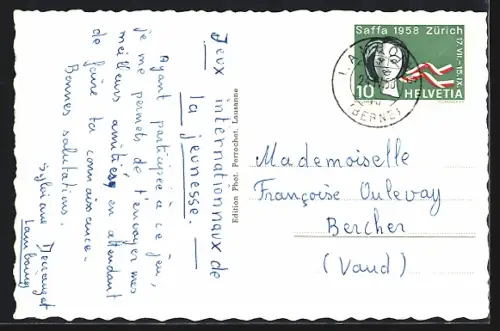 Jeux internationaux de
la jeunesse. —
Ayant participée à ce jeu,
je me permets de t'envoyer mes
meilleurs amitiés en attendant
de faire ta connaissance.
Bonnes salutations.
Sylviane
Edition Phot. Perrochet, Lausanne
Saffa 1958 Zürich
17.VII.-15.IX.
10 HELVETIA
(BERNE)
Mademoiselle
Françoise Oulevay
Bercher
(Vaud)